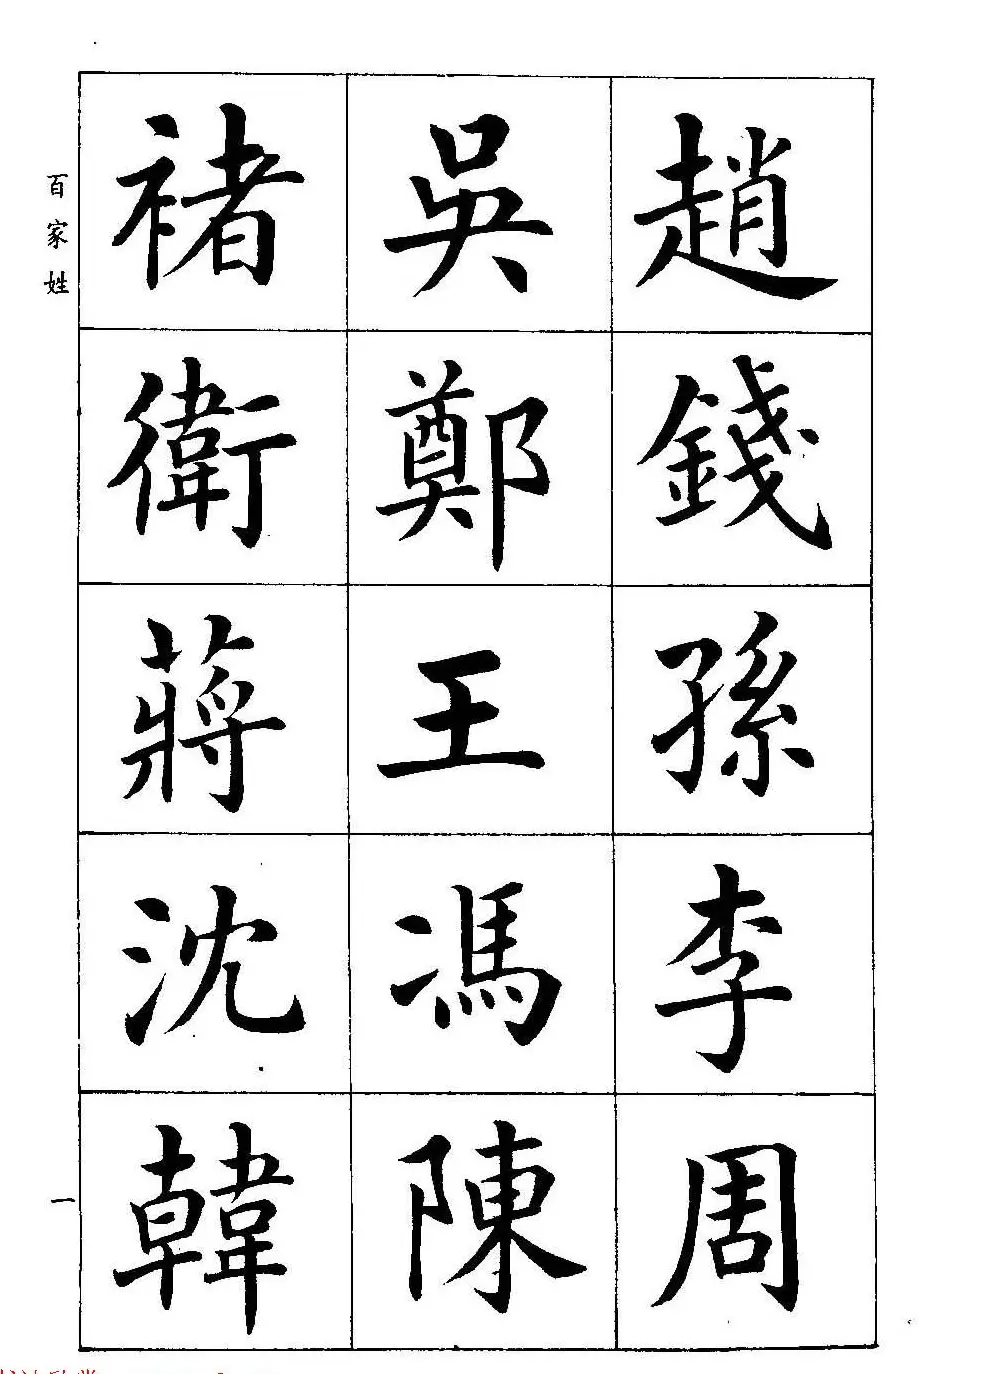 趙錢孫李周
吳鄭王馮陳
褚衛蔣沈韓
百家姓
一